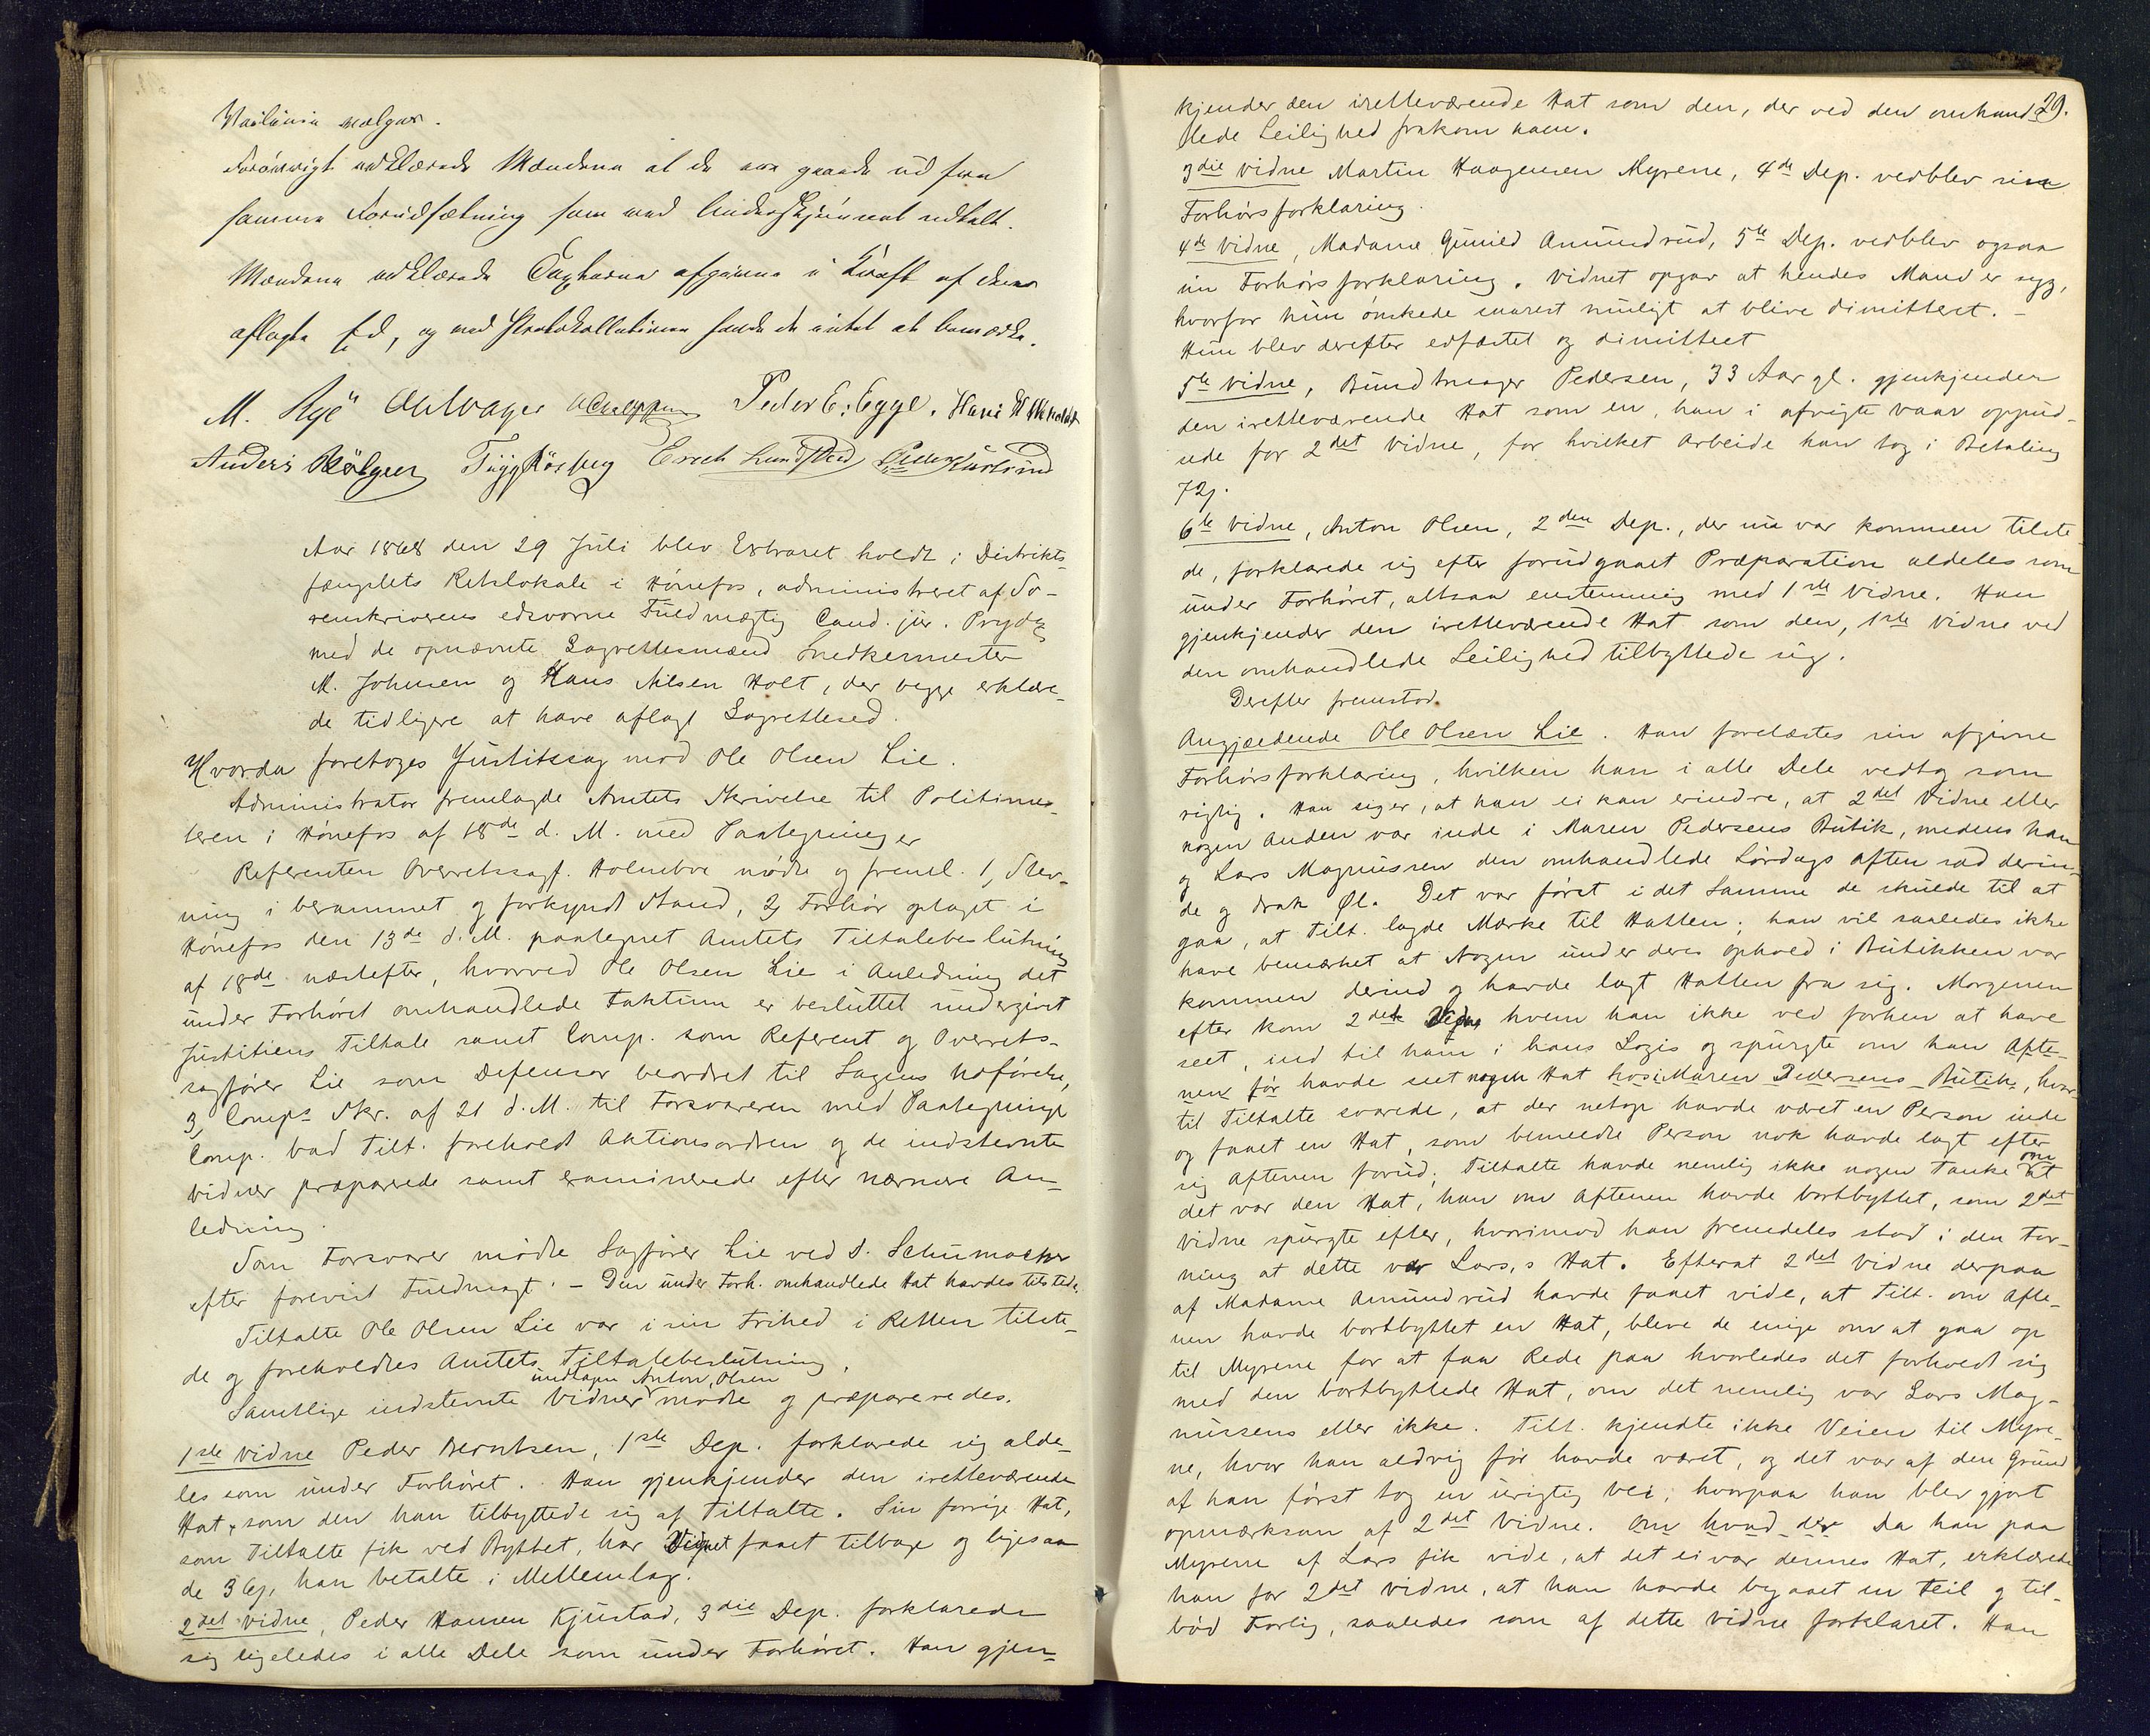 Veilinia vælges.
Forøvrigt erklærede Mændene at de var gaaede ud fra
samme Forudsætning som ved Underskjønnet udtalt.
Mændene erklærede Taxterne afgivne i Kraft af deres
aflagte Ed, og ved Protokollationen fandt de intet at bemærke.
M. Rye Peter E. Egge. Hans
Anders Bølgen Erich Lundsted
Aar 1868 den 29 Juli blev Extraret holdt i Distrikts-
fængslets Retslokale i Hønefos, administreret af So-
renskriverens edsvorne Fuldmægtig Cand. jur. Prydz
med de opnævnte Lagrettesmænd Snedkermester
M. Johnsen og Hans Nilsen Holt, der begge erklære-
de tidligere at have aflagt Lagrettesed.
Hvorda foretoges Justitssag mod Ole Olsen Lie.
Administrator fremlagde Amtets Skrivelse til Politime-
teren i Hønefos af 18de d. M. med Paategninger
Referenten Overretssagf. Holmboe mødte og freml. 1, Stev-
ning i berammet og forkyndt Stand, 2, Forhør optaget i
Hønefos den 13de d. M. paategnet Amtets Tiltalebeslutning
af 18de næstefter, hvorved Ole Olsen Lie i Anledning det
under Forhøret omhandlede Faktum er besluttet undergivet
Justitiens Tiltale samt Comp. som Referent og Overrets-
sagfører Lie som Defensor beordret til Sagens Udførelse,
3, Comps Skr. af 21 d. M. til Forsvareren med Paategning
Comp. bad Tilt. foreholdt Aktionsordren og de indstevnte
Vidner præparerede samt examinerede efter nærmere An-
ledning.
Som Forsvarer mødte Sagfører Lie ved S. Schumacher
efter forevist Fuldmagt. – Den under Forh. omhandlede Hat havdes tilstede.
Tiltalte Ole Olsen Lie var i sin Frihed i Retten tilste-
de og foreholdtes Amtets Tiltalebeslutning.
undtagen Anton Olsen
Samtlige indstevnte Vidner mødte og præpareredes.
1ste Vidne Peder Berntsen, 1ste Dep. forklarede sig alde-
les som under Forhøret. Han gjenkjender den iretteværende
Hat, som den han tilbyttede sig af Tiltalte. Sin forrige Hat,
som Tiltalte fik ved Byttet, har Vidnet faaet tilbage og ligesaa
de 3 , han betalte i Mellemlag.
2det Vidne, Peder Hansen Kjustad, 3die Dep. forklarede
sig ligeledes i alle Dele som under Forhøret. Han gjen-
29.
kjender den iretteværende Hat som den, der ved den omhand-
lede Leilighed frakom ham.
3die Vidne Martin Haagensen Myrene, 4de Dep. vedblev sin
Forhørsforklaring.
4de Vidne, Madame Gunild Amundrud, 5te Dep. vedblev ogsaa
sin Forhørsforklaring. Vidnet opgav at hendes Mand er syg,
hvorfor hun ønskede snarest muligt at blive dimitteret. –
Hun blev derefter edfæstet og dimitteret
5te Vidne, Bundtmager Pedersen, 33 Aar gl. gjenkjender
den iretteværende Hat som en, han i afvigte Vaar oppud-
sede for 2det Vidne, for hvilket Arbeide han tog i Betaling
6te Vidne, Anton Olsen, 2den Dep., der nu var kommen tilste-
de, forklarede sig efter forudgaaet Præparation aldeles som
under Forhøret, altsaa enstemmig med 1ste Vidne. Han
gjenkjender den iretteværende Hat som den, 1ste Vidne ved
den omhandlede Leilighed tilbyttede sig.
Derefter fremstod
Angjældende Ole Olsen Lie. Han forelæstes sin afgivne
Forhørsforklaring, hvilken han i alle Dele vedtog som
rigtig. Han siger, at han ei kan erindre, at 2det Vidne eller
nogen Anden var inde i Maren Pedersens Butik, medens han
og Lars Magnussen den omhandlede Lørdags aften sad derin-
de og drak Øl. Det var først i det Samme de skulde til at
gaa, at Tilt. lagde Mærke til Hatten; han vil saaledes ikke
have bemærket at Nogen under deres Ophold i Butikken var
kommen derind og havde lagt Hatten fra sig. Morgenen
efter kom 2det Vidne hvem han ikke ved forhen at have
seet, ind til ham i hans Logis og spurgte om han Afte-
nen før havde seet nogen Hat hos i Maren Pedersens Butik, hvor-
til Tiltalte svarede, at der netop havde været en Person inde
og faaet en Hat, som bemeldte Person nok havde lagt efter
sig Aftenen forud; Tiltalte havde nemlig ikke nogen Tanke om at
det var den Hat, han om Aftenen havde bortbyttet, som 2det
Vidne spurgte efter, hvorimod han fremdeles stod i den For-
ning at dette var Lars,s Hat. Efterat 2det Vidne derpaa
af Madame Amundrud havde faaet vide, at Tilt. om Afte-
nen havde bortbyttet en Hat, bleve de enige om at gaa op
til Myrene for at faa Rede paa hvorledes det forholdt sig
med den bortbyttede Hat, om det nemlig var Lars Mag-
nussens eller ikke. Tilt. kjendte ikke Veien til Myre-
ne, hvor han aldrig før havde været, og det var af den Grund
at han først tog en urigtig Vei; hvorpaa han blev gjort
opmærksom af 2det Vidne. Om hvad der Da han paa
Myrene af Lars fik vide, at det ei var dennes Hat, erklærede
han for 2det Vidne, at han havde begaaet en Feil og til-
bød Forlig, saaledes som af dette Vidne forklaret. Han